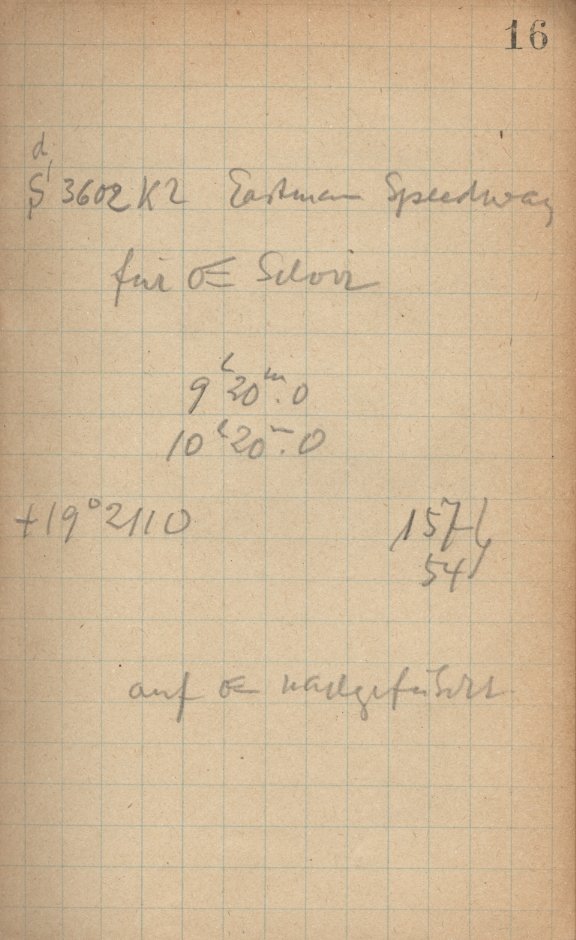 16
d
S 3602 K2 Eastman Speedway
für
9ʰ20ᵐ.0
10ʰ20ᵐ.0
+19°2110 157
54
auf nachgeführt